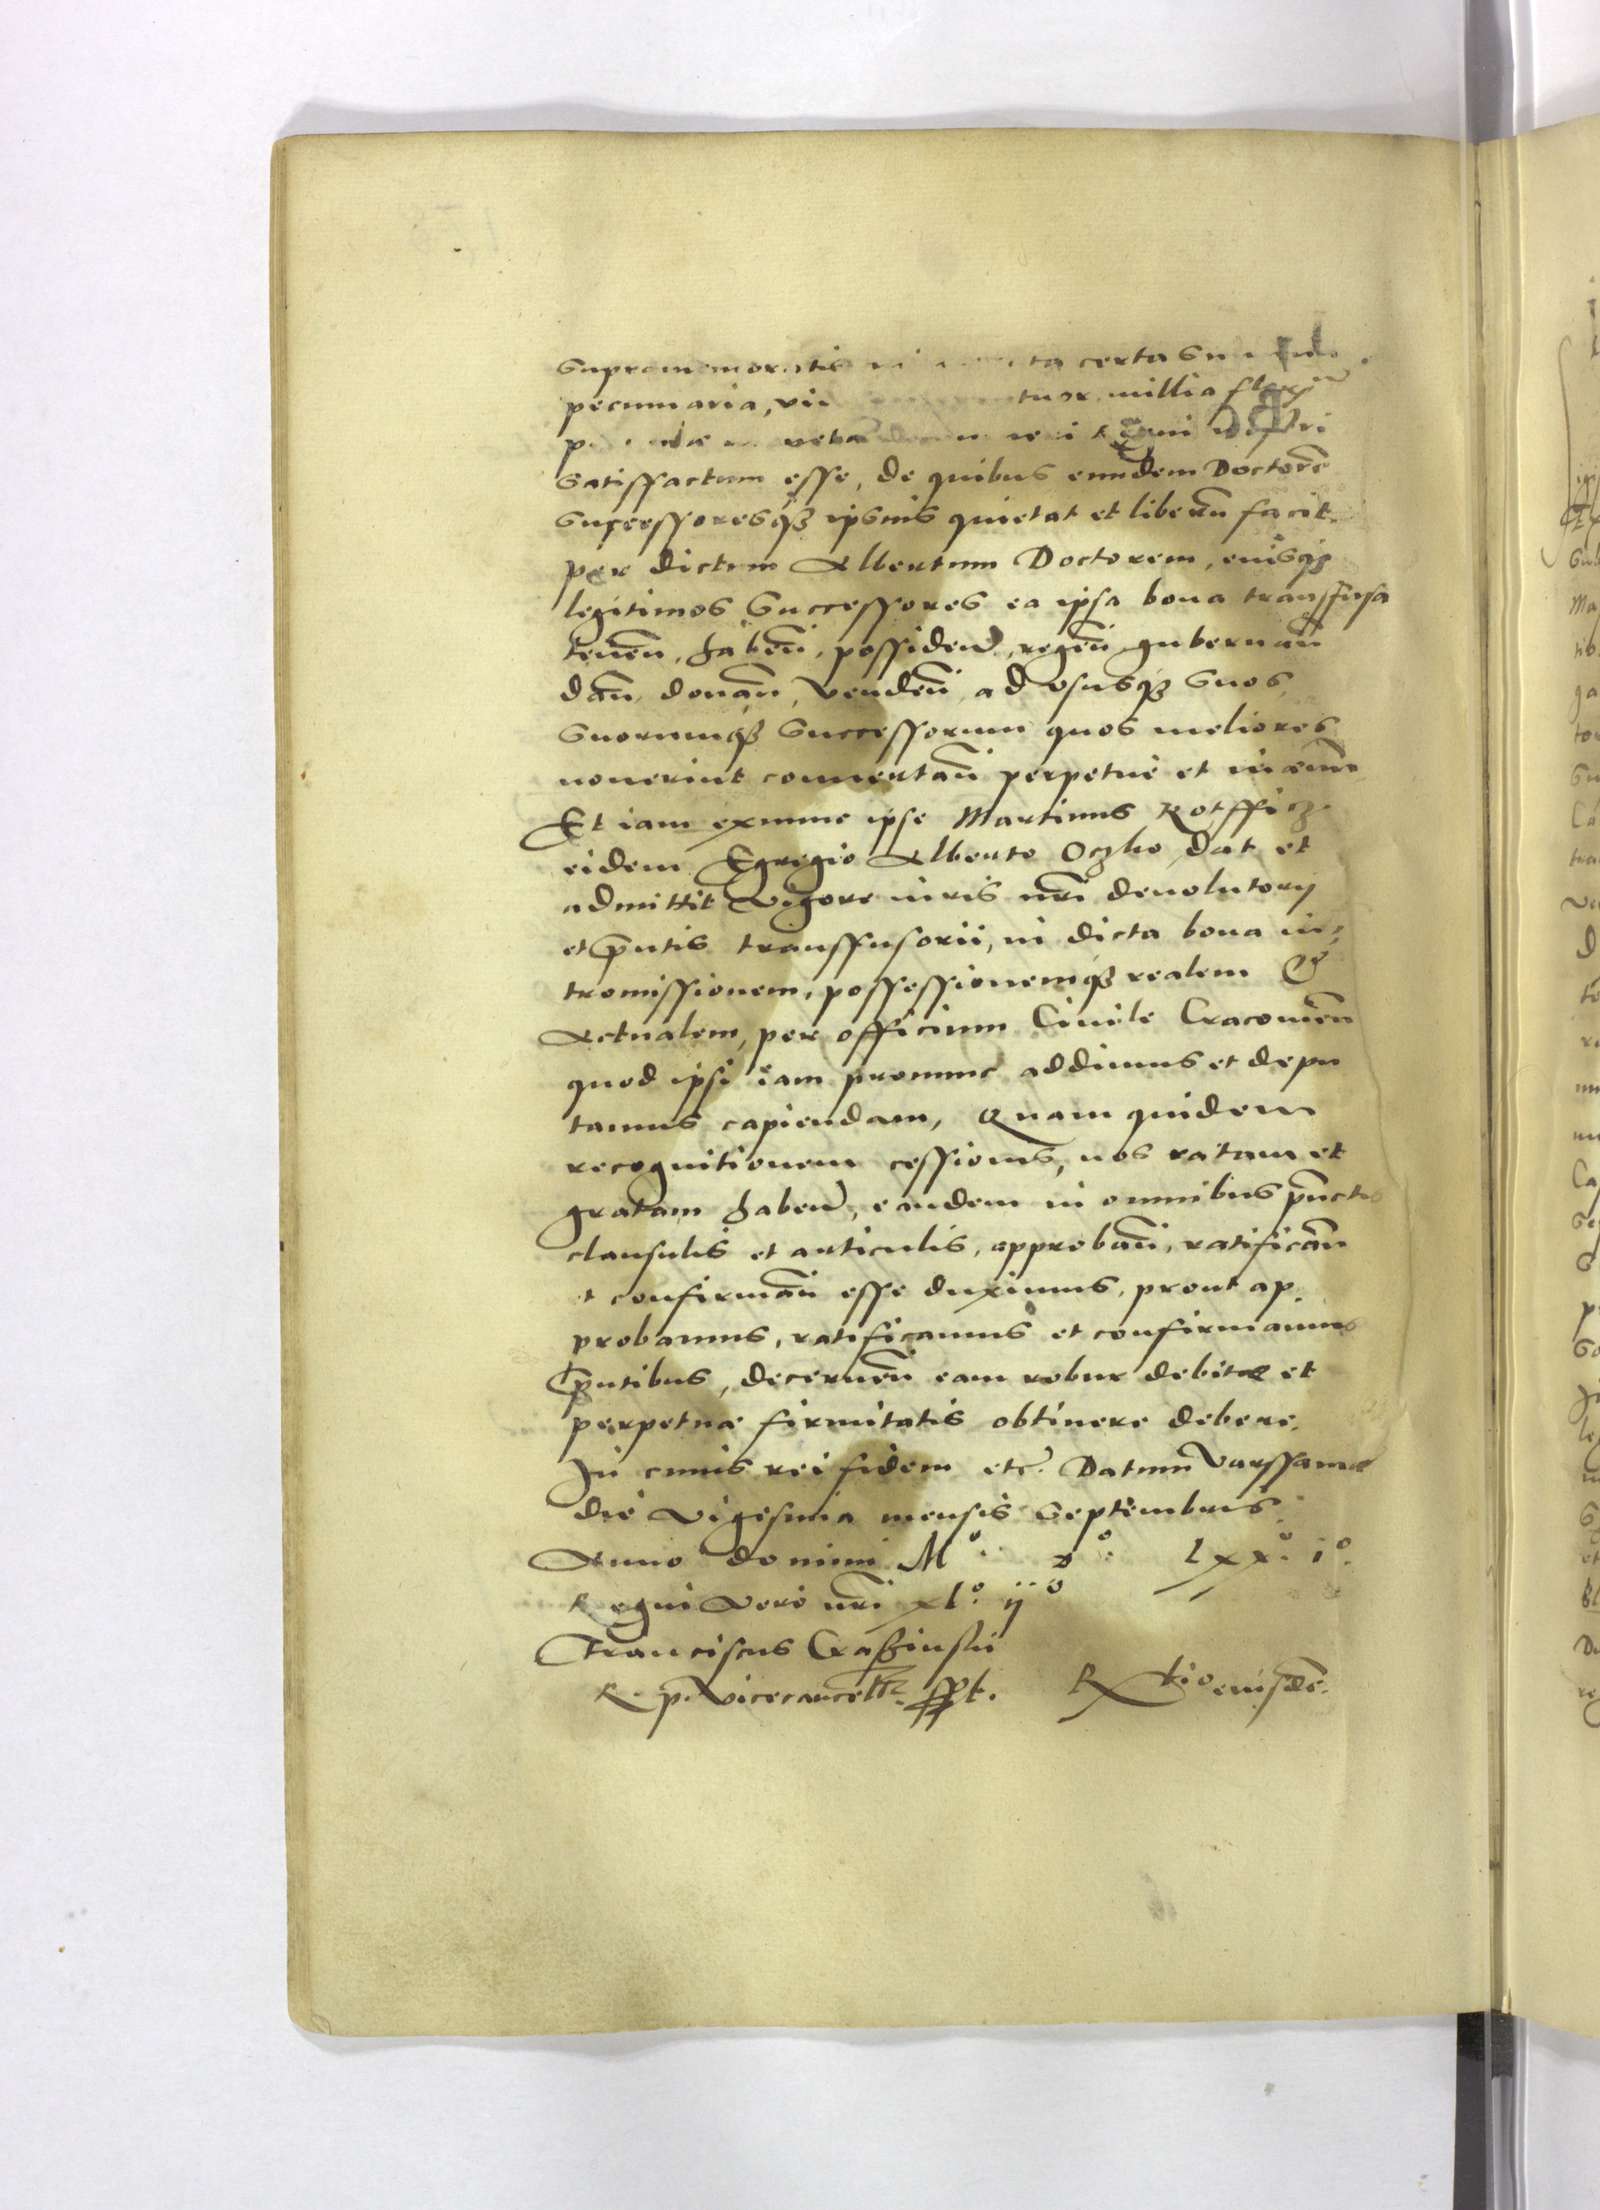 certa
pecuniaria, tuor millia
satisfactum esse, de quibus eundem Doctorē
sucessoresq3 ipsius quietat et liberum facit.
per dictum Albertum Doctorem, eiusq3
legitimos Successores ea ipsa bona transfusa
tenen̄, haben̄, possiden̄, regen̄ gubernan̄
dan̄ donan̄, venden̄, ad vsusq3 suos
suorumq3 Successorum quos meliores
nouerint conuertan̄ perpetue et in aeuum
Et iam exnunc ipse Martinus Rotfficz
eidem Egregio Alberto Oczko dat et
admittit vigore iuris nrī deuolutorij
et p̄ntis transfusorii, in dicta bona in,
tromissionem, possessionemq3 realem &
Actualem, per officium Ciuile Cracouien̄
quod ipsi iam pronunc addimus et depu
tamus capiendam, Quam quidem
recognitionem cessionis, nos ratam et
gratam haben̄, eandem in omnibus punctis
clausulis et articulis, approban̄, ratifican̄
et confirman̄ esse duximus, prout ap
probamus, ratificamus et confirmamus
p̄ntibus, decernen̄ eam robur debitae et
perpetuae firmitatis obtinere debere.
In cuius rei fidem etc̄. Datum Varssauiae
die vigesima mensis Septembris.
Anno domini Mº. Dº. Lxxº. iº.
Regni vero nrī xlº. ijº
Franciscus Crasinskii
R. p. Vicecancell̄. sspt. Rtio eiusdē.